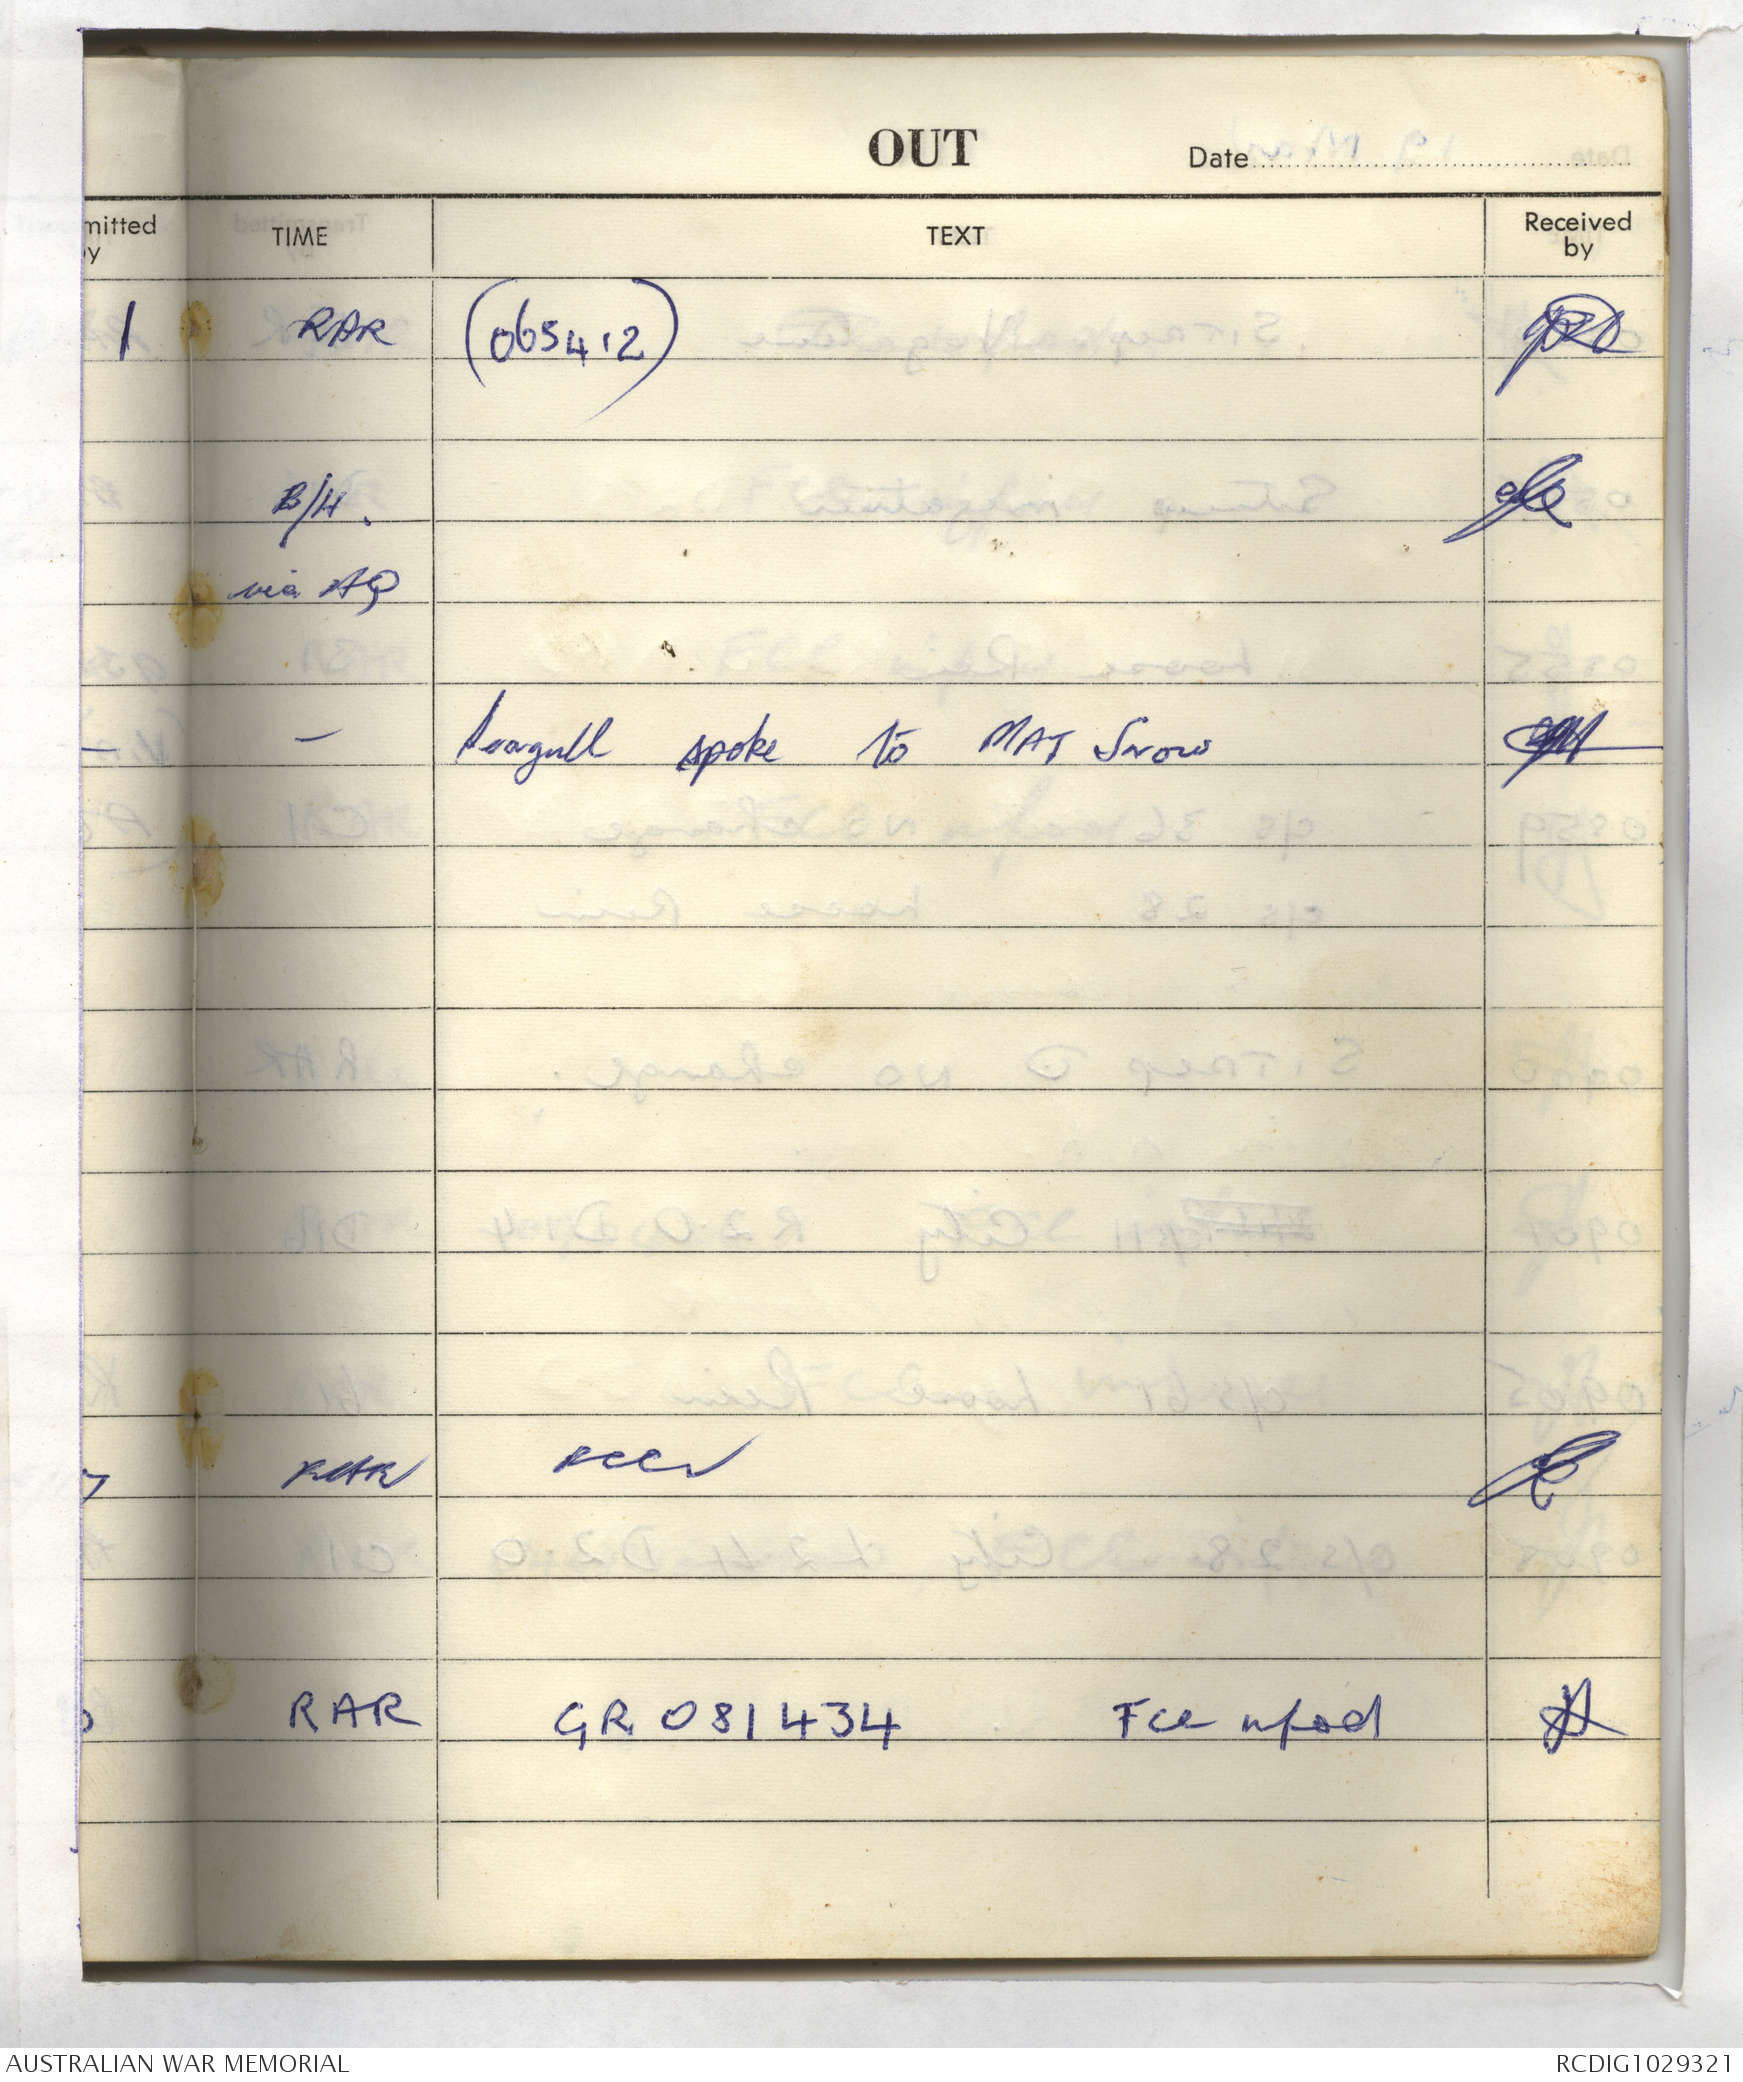 OUT
Date
mitted
by
TIME
TEXT
Received
by
1 RAR (065412)
B/H.
via AQ
- - Seagull spoke to MAJ Snow
RAR
RAR GR 081434 Fce
AUSTRALIAN WAR MEMORIAL
RCDIG1029321